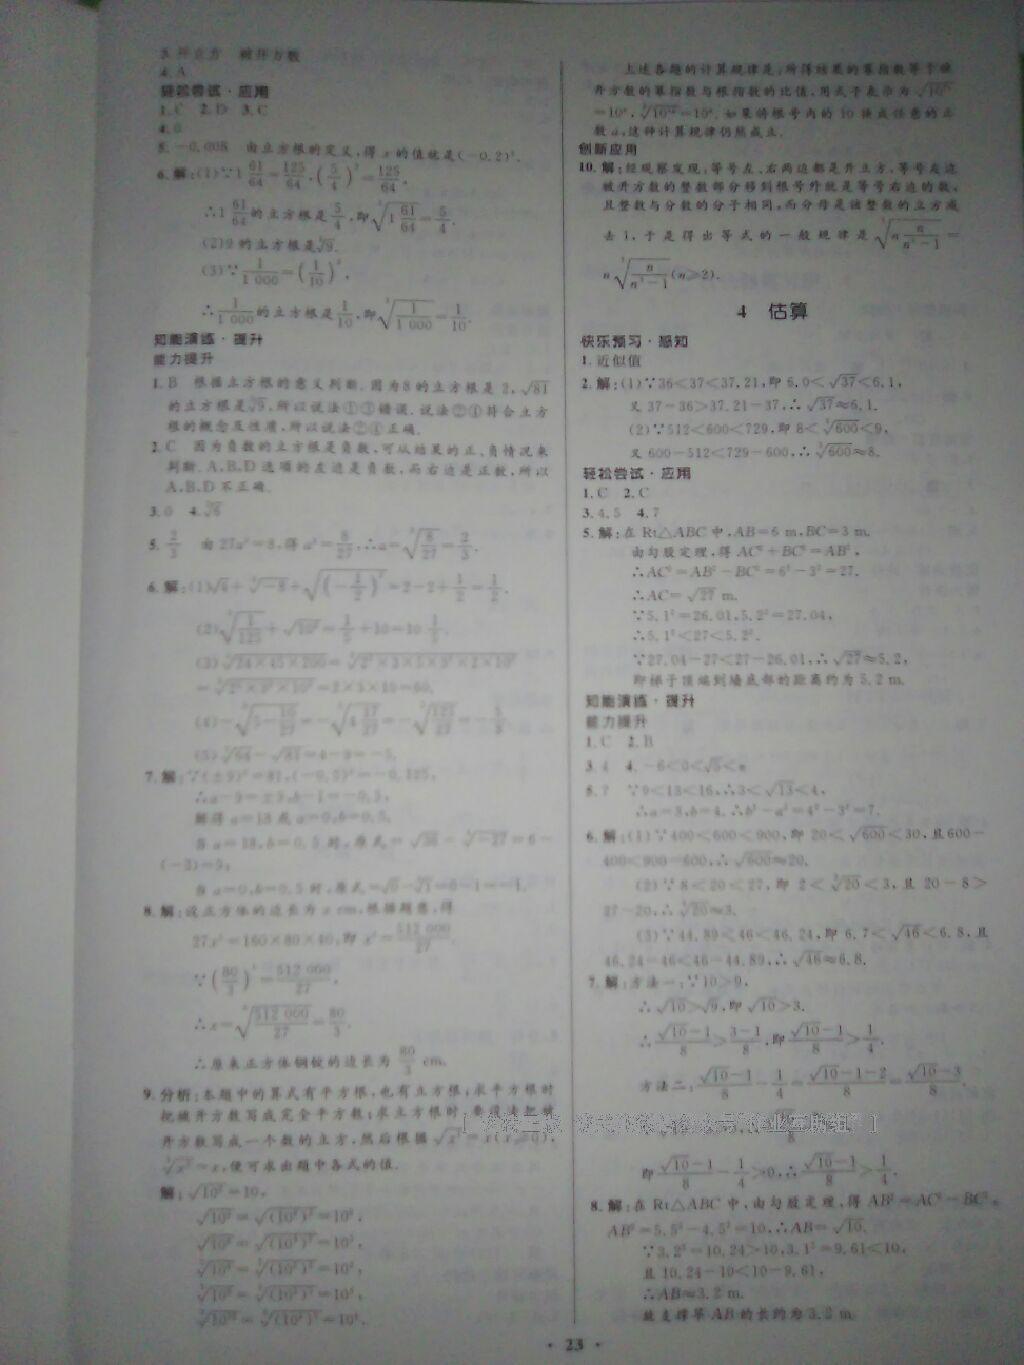 3. 开立方 被开方数
4. A
轻松尝试·应用
1. C 2. D 3. C
4. 0
5. -0.008 由立方根的定义,得 x 的值就是(-0.2)³.
6. 解:(1)∵1 61/64=125/64,(5/4)³=125/64,
∴1 61/64的立方根是5/4,即∛(1 61/64)=5/4.
(2)9 的立方根是∛9.
(3)∵1/1 000=(1/10)³,
∴1/1 000的立方根是1/10,即∛(1/1 000)=1/10.
知能演练·提升
能力提升
1. B 根据立方根的意义判断.因为8的立方根是 2,√81
的立方根是∛9,所以说法①③错误.说法②④符合立方
根的概念及性质,所以说法②④正确.
2. C 因为负数的立方根是负数,可从结果的正、负情况来
判断.A,B,D 选项的左边是负数,而右边是正数,所以
A,B,D不正确.
3. 0 4.
5. 2/3 由 27a³=8,得 a³=8/27,∴a=∛(8/27)=2/3.
6. 解:(1)√4+∛-8+√((-1/2)²)=2-2+1/2=1/2.
(2)∛(1/125)+√10²=1/5+10=10 1/5.
(3)∛(24×45×200)=∛(2³×3×5×9×2×10²)
7. 解:∵(±9)²=81,(-0.5)³=-0.125,
∴a-9=±9,b-1=-0.5,
解得 a=18 或 a=0,b=0.5.
当 a=18,b=0.5 时,原式=√36-∛-27=6-
(-3)=9;
8. 解:设正方体的边长为 x cm,根据题意,得
27x³=160×80×40,即 x³=512 000/27.
∵(80/3)³=512 000/27,
∴x=∛(512 000/27)=80/3.
∴原来正方体钢锭的边长为 80/3 cm.
9. 分析:本题中的算式有平方根,也有立方根;求平方根时
把被开方数写成完全平方数;求立方根时,要设法把被
开方数写成一个数的立方,然后根据√x²=x(x≥0),
∛x³=x,便可求出题中各式的值.
解:√10²=10,
√10⁴=√(10²)²=10²,
√10⁶=√(10³)²=10³,
上述各题的计算规律是:所得结果的幂指数等于被
开方数的幂指数与根指数的比值,用式子表示为
如果将根号内的 10 换成任意的正
数 a,这种计算规律仍然成立.
创新应用
10. 解:经观察发现:等号左、右两边都是开立方,等号左边
被开方数的整数部分移到根号外就是等号右边的数,
且整数与分数的分子相同,而分母是该整数的立方减
去 1,于是得出等式的一般规律是∛(n n/(n³-1))=
n∛(n/(n³-1))(n≥2).
4 估算
快乐预习·感知
1. 近似值
2. 解:(1)∵36<37<37.21,即 6.0<√37<6.1,
又 37-36>37.21-37,∴√37≈6.1.
(2)∵512<600<729,即 8<∛600<9,
又 600-512<729-600,∴∛600≈8.
轻松尝试·应用
1. C 2. C
3. 4.5 4. 7
5. 解:在 Rt△ABC 中,AB=6 m,BC=3 m.
由勾股定理,得 AC²+BC²=AB²,
∴AC²=AB²-BC²=6²-3²=27.
∴AC=√27 m.
∵5.1²=26.01,5.2²=27.04,
∴5.1²<27<5.2².
∵27.04-27<27-26.01,∴√27≈5.2,
即梯子顶端到墙底部的距离约为 5.2 m.
知能演练·提升
能力提升
1. C 2. B
3. 4 4. -6<0<√5<π
5. 7 ∵9<13<16,∴3<√13<4,
∴a=3,b=4.∴b²-a²=4²-3²=7.
6. 解:(1)∵400<600<900,即 20<√600<30,且600-
400<900-600,∴√600≈20.
(2)∵8<20<27,即 2<∛20<3,且 20-8>
27-20,∴∛20≈3.
(3)∵44.89<46<46.24,即 6.7<√46<6.8,且
46.24-46<46-44.89,∴√46≈6.8.
7. 解:方法一:∵10>9,
∴√10>√9,即√10>3.
∴(√10-1)/8>(3-1)/8,即(√10-1)/8>1/4.
方法二:(√10-1)/8-1/4=(√10-1-2)/8=(√10-3)/8.
即(√10-1)/8-1/4>0,∴(√10-1)/8>1/4.
8. 解:在 Rt△ABC 中,由勾股定理,得 AB²=AC²-BC²,
AB²=5.5²-4.5²=10,∴AB=√10.
∵3.2²=10.24>10,3.1²=9.61<10,
且 10.24-10<10-9.61,
∴AB≈3.2 m.
故支撑竿AB的长约为3.2 m.
· 23 ·